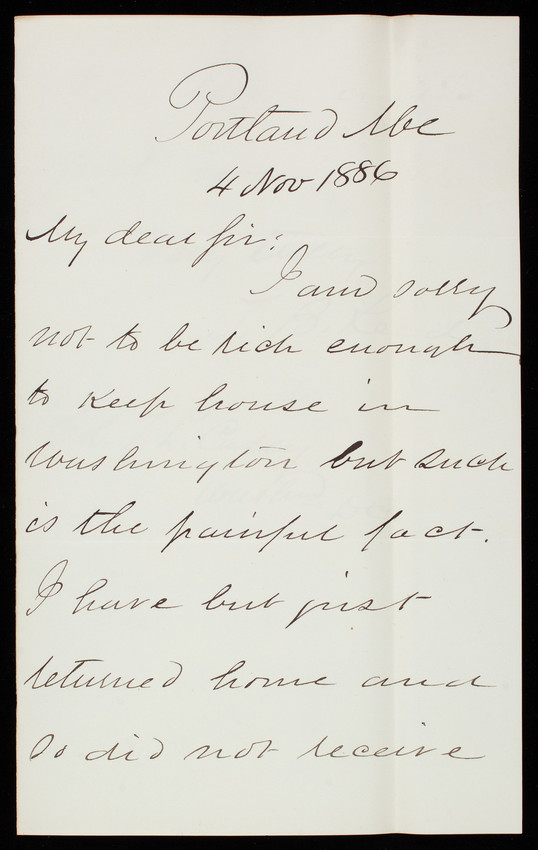 Portland Me
4 Nov 1886
My dear Sir:
I am sorry
not to be rich enough
to keep house in
Washington but such
is the painful fact.
I have but just
returned home and
so did not receive